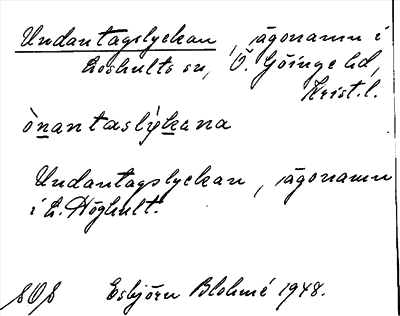 Undantagslyckan, ägonamn i
Loshults sn, Ö. Göinge hd,
Krist. l.
ònantaslýkana
Undantagslyckan, ägonamn
i L. Höghult.
SOS Esbjörn Blohmé 1948.